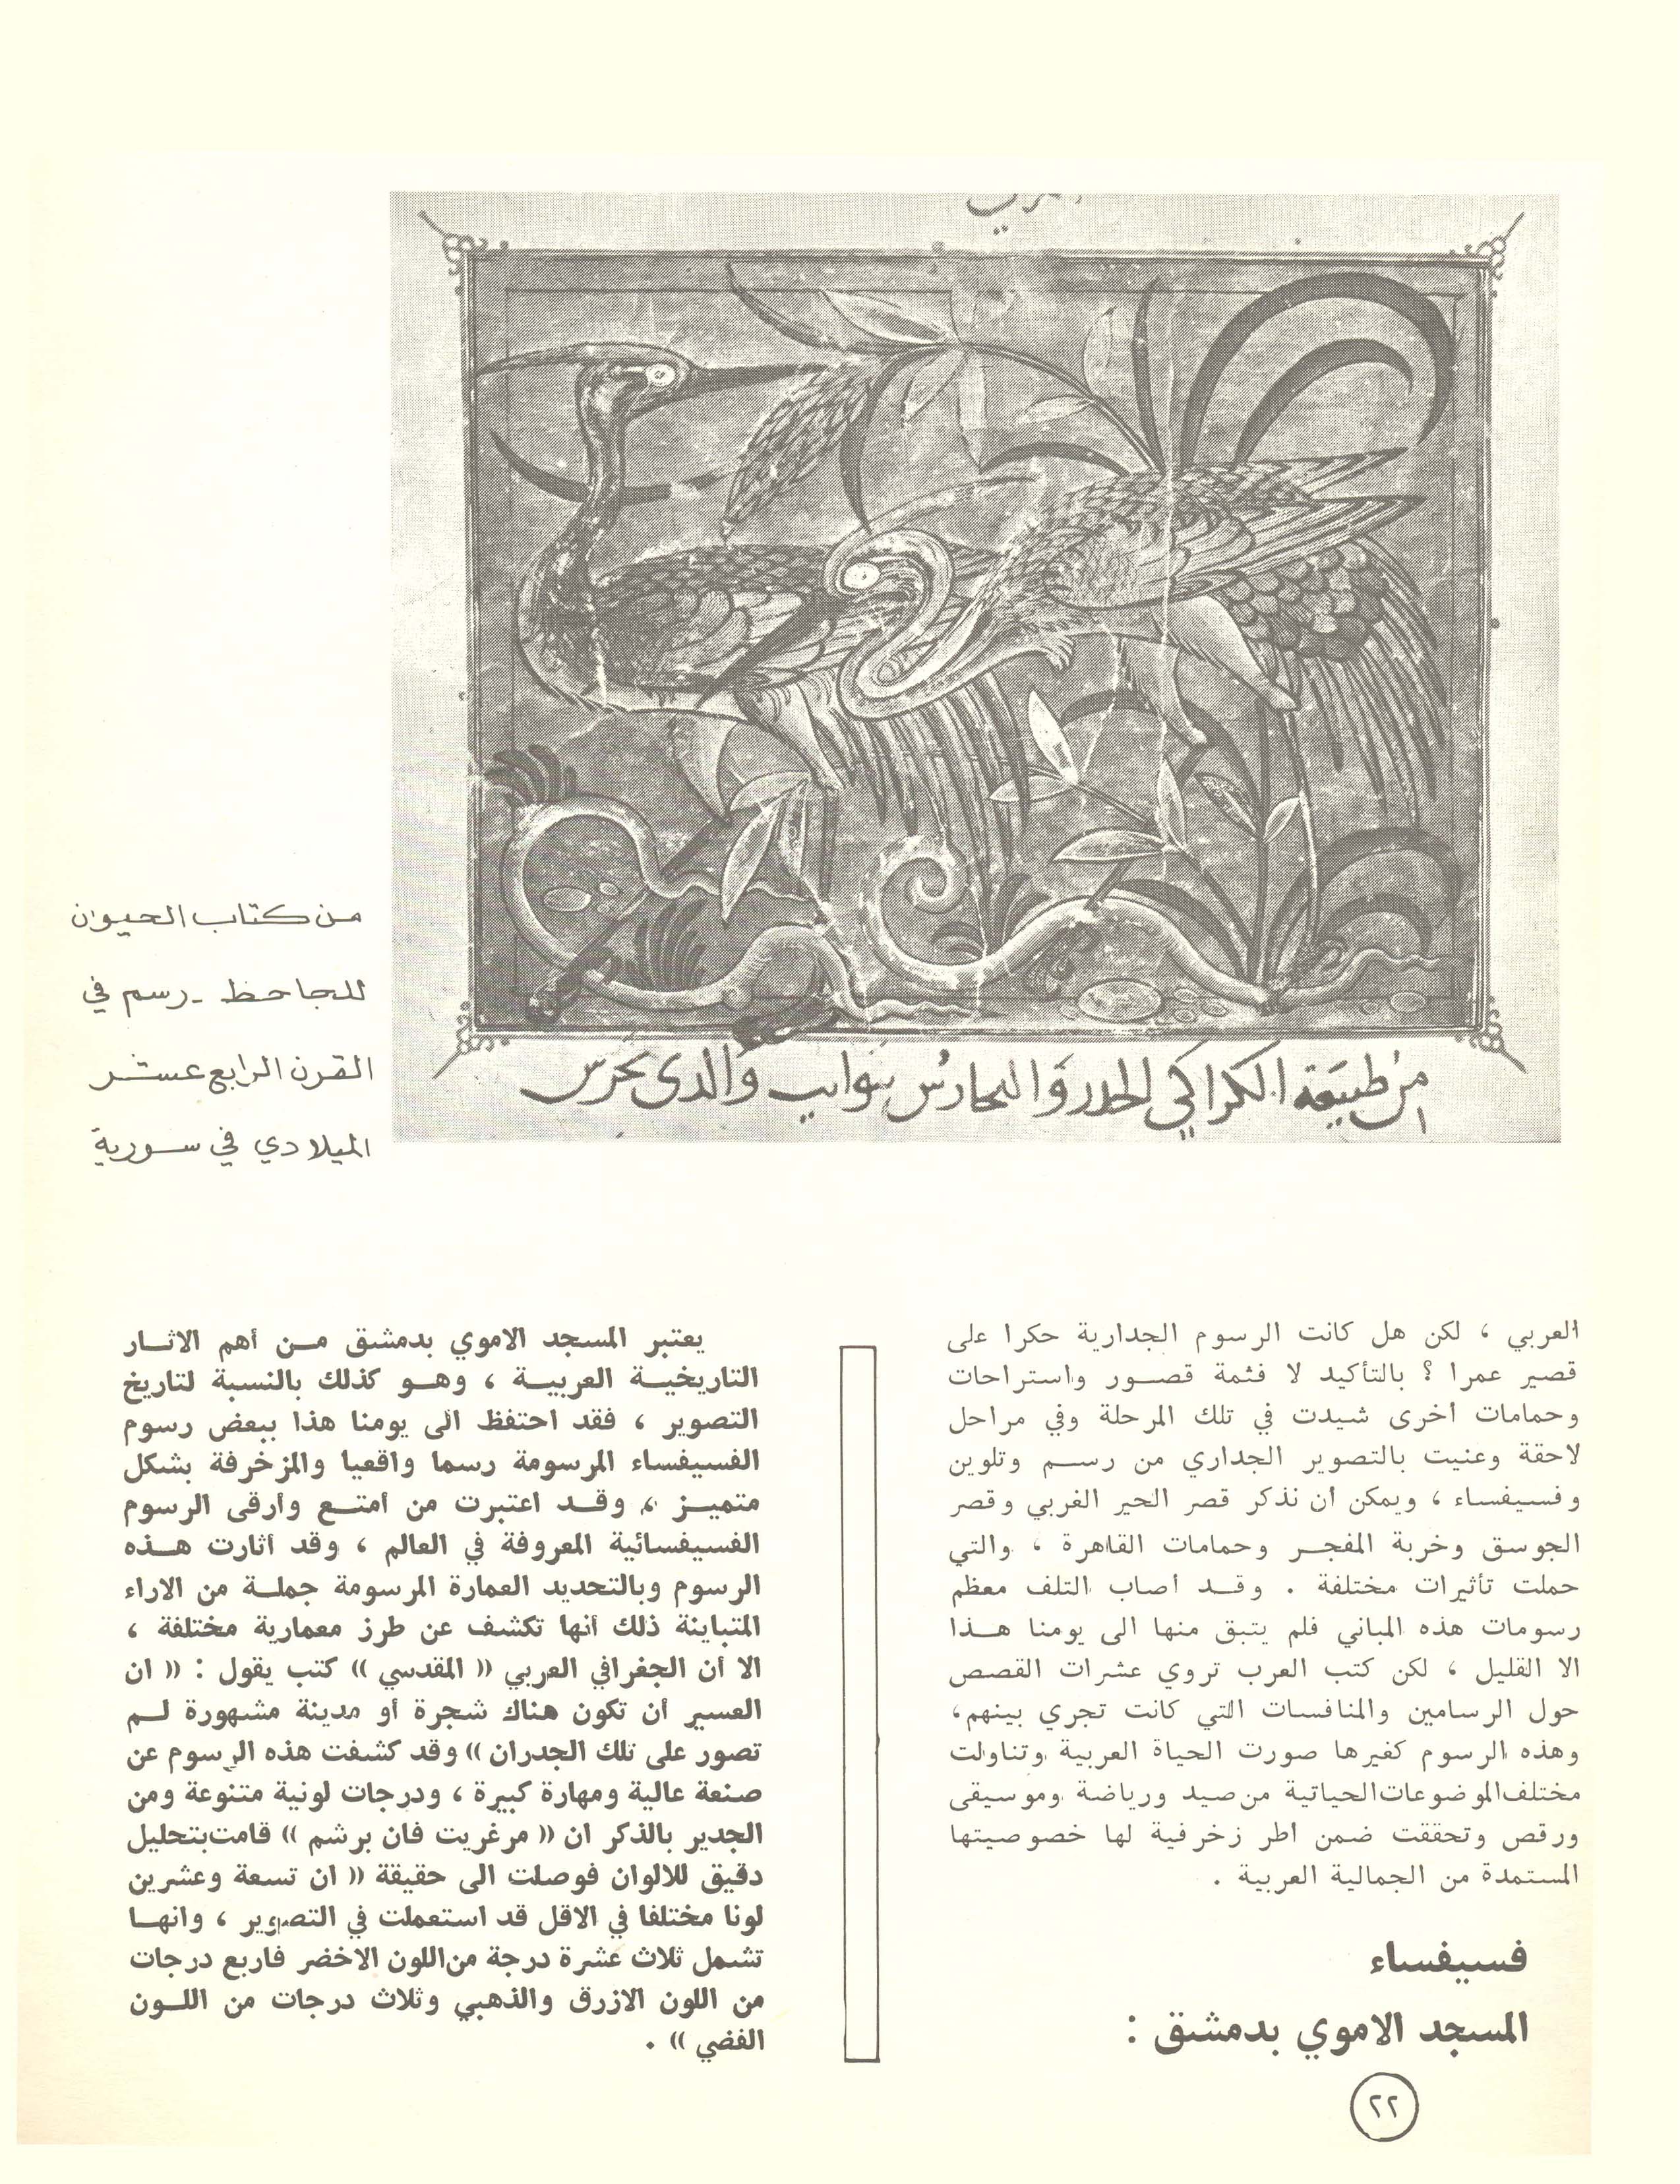 من طبيعة الكراكي الحذر والتحارس بنوايب والذي يحرس
من كتاب الحيوان
للجاحظ - رسم في
القرن الرابع عشر
الميلادي في سورية
العربي ، لكن هل كانت الرسوم الجدارية حكرا على
قصير عمرا ؟ بالتأكيد لا فثمة قصـور واستراحات
وحمامات أخرى شيدت في تلك المرحلة وفي مراحل
لاحقة وعنيت بالتصوير الجداري من رسـم وتلوين
وفسيفساء ، ويمكن ان نذكر قصر الحير الغربي وقصر
الجوسق وخربة المفجـر وحمامات القاهرة ، والتي
حملت تأثيرات مختلفة . وقـد أصاب التلف معظم
رسومات هذه المباني فلم يتبق منها الى يومنا هـذا
الا القليل ، لكن كتب العرب تروي عشرات القصص
حول الرسامين والمنافسات التي كانت تجري بينهم،
وهذه الرسوم كغيرها صورت الحياة العربية وتناولت
مختلف الموضوعات الحياتية من صيد ورياضة وموسيقى
ورقص وتحققت ضمن اطر زخرفية لها خصوصيتها
المستمدة من الجمالية العربية .
فسيفساء
المسجد الاموي بدمشق :
يعتبر المسجد الاموي بدمشق مـن أهم الاثـار
التاريخيـة العربيـة ، وهـو كذلك بالنسبة لتاريخ
التصوير ، فقد احتفظ الى يومنا هذا ببعض رسوم
الفسيفساء المرسومة رسما واقعيا والمزخرفة بشكل
متميـز ، وقـد اعتبرت من أمتـع وأرقى الرسوم
الفسيفسائية المعروفة في العالم ، وقد أثارت هـذه
الرسوم وبالتحديد العمارة المرسومة جملـة من الاراء
المتباينة ذلك أنها تكشف عن طرز معمارية مختلفة ،
الا أن الجغرافي العربي (( المقدسي )) كتب يقول : (( ان
العسير أن تكون هناك شجرة أو مدينة مشهورة لـم
تصور على تلك الجدران )) وقد كشفت هذه الرسوم عن
صنعة عالية ومهارة كبيرة ، ودرجات لونية متنوعة ومن
الجدير بالذكر ان (( مرغريت فان برشم )) قامت بتحليل
دقيق للالوان فوصلت الى حقيقة (( ان تسعة وعشرين
لونا مختلفا في الاقل قد استعملت في التصوير ، وانهـا
تشمل ثلاث عشرة درجة من اللون الاخضر فاربع درجات
من اللون الازرق والذهبي وثلاث درجات من اللـون
الفضي )) .
٢٢